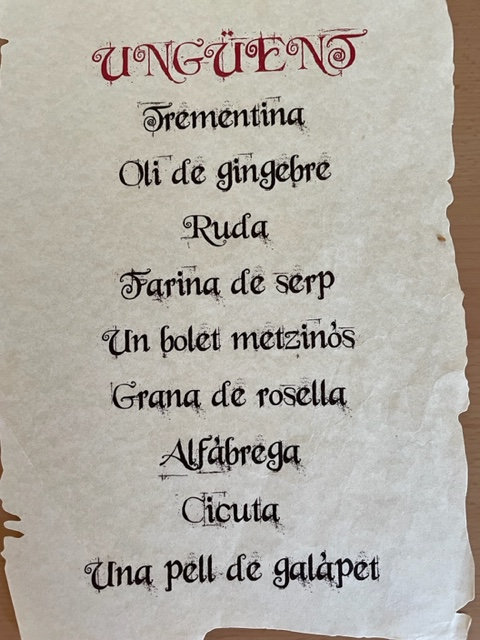 UNGÜENT
Trementina
Oli de gingebre
Ruda
Farina de serp
Un bolet metzinòs
Grana de rosella
Alfàbrega
Cicuta
Una pell de galàpet